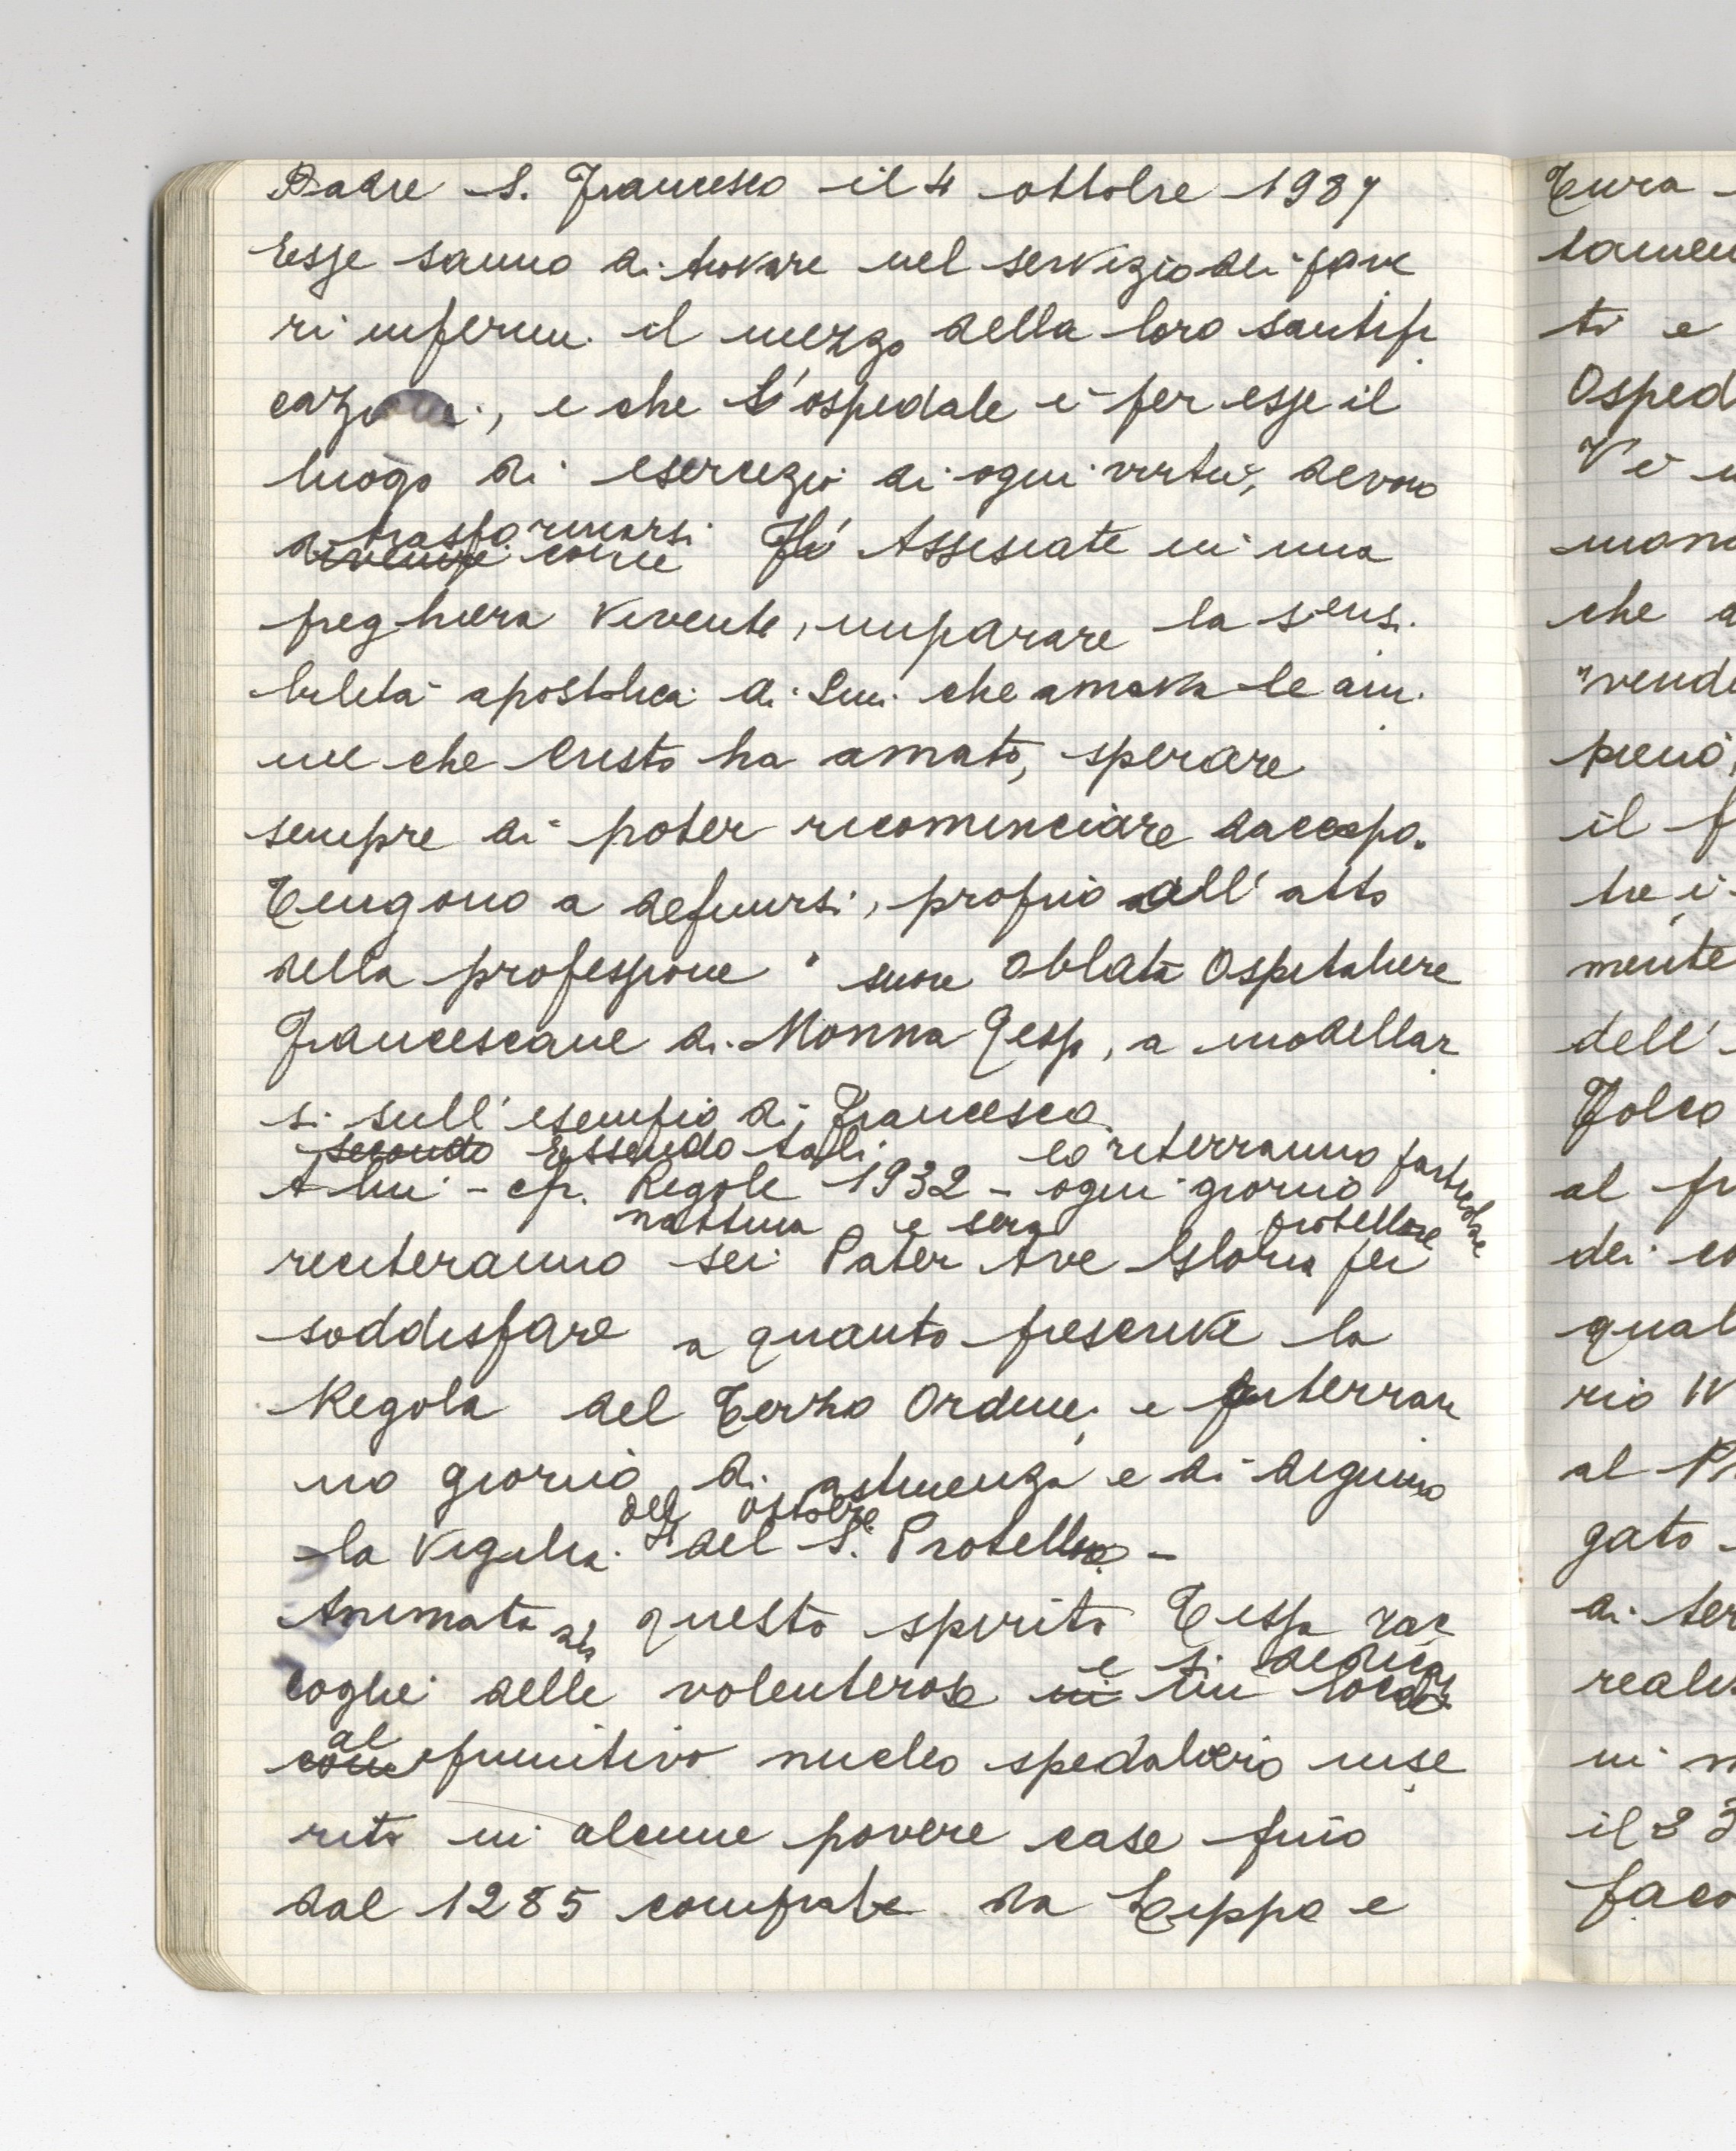 Padre S. Francesco il 4 ottobre 1987
Esse sanno di trovare nel servizio dei pove
ri infermi il mezzo della loro santifi
e che l'ospedale è per esse il
luogo di esercizio di ogni virtù, devono
trasformarsi
come Assisiate in una
preghiera vivente, imparare la sensi
bilità apostolica di Lui che amava le ani
me che Cristo ha amato, sperare
sempre di poter ricominciare daccapo.
Tengono a definirsi, proprio all'atto
della professione " suore Oblate Ospitaliere
Francescane di Monna Tessa, a modellar
si sull'esempio di Francesco
secondo Essendo tali lo riterranno particolare
A lui - cfr. Regole 1932 - ogni giorno
mattina e sera protettore
reciteranno sei Pater Ave Gloria per
soddisfare a quanto prescrive la
Regola del Terzo Ordine, e
no giorno di astinenza e di digiuno
del ottobre
la Vigilia del S. Protettore -
Animata da questo spirito Tessa rac
e si dedica
coglie delle volenterose in un
al
come primitivo nucleo spedaliero inse
rito in alcune povere case fino
dal 1285 comprate da Cippo e
Cura
tamen
ti e
Osped
V è
man
che a
"vende
pieno,
il f
tre i
mente
dell'
Folco
al fr
dei co
qual
rio IV
al Pr
gato
di ter
reali
in m
il 23
faco